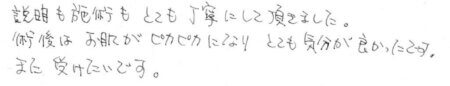 説明も施術も とても丁寧にして頂きました。
術後は お肌が ピカピカになり とても気分が良かったです。
また 受けたいです。